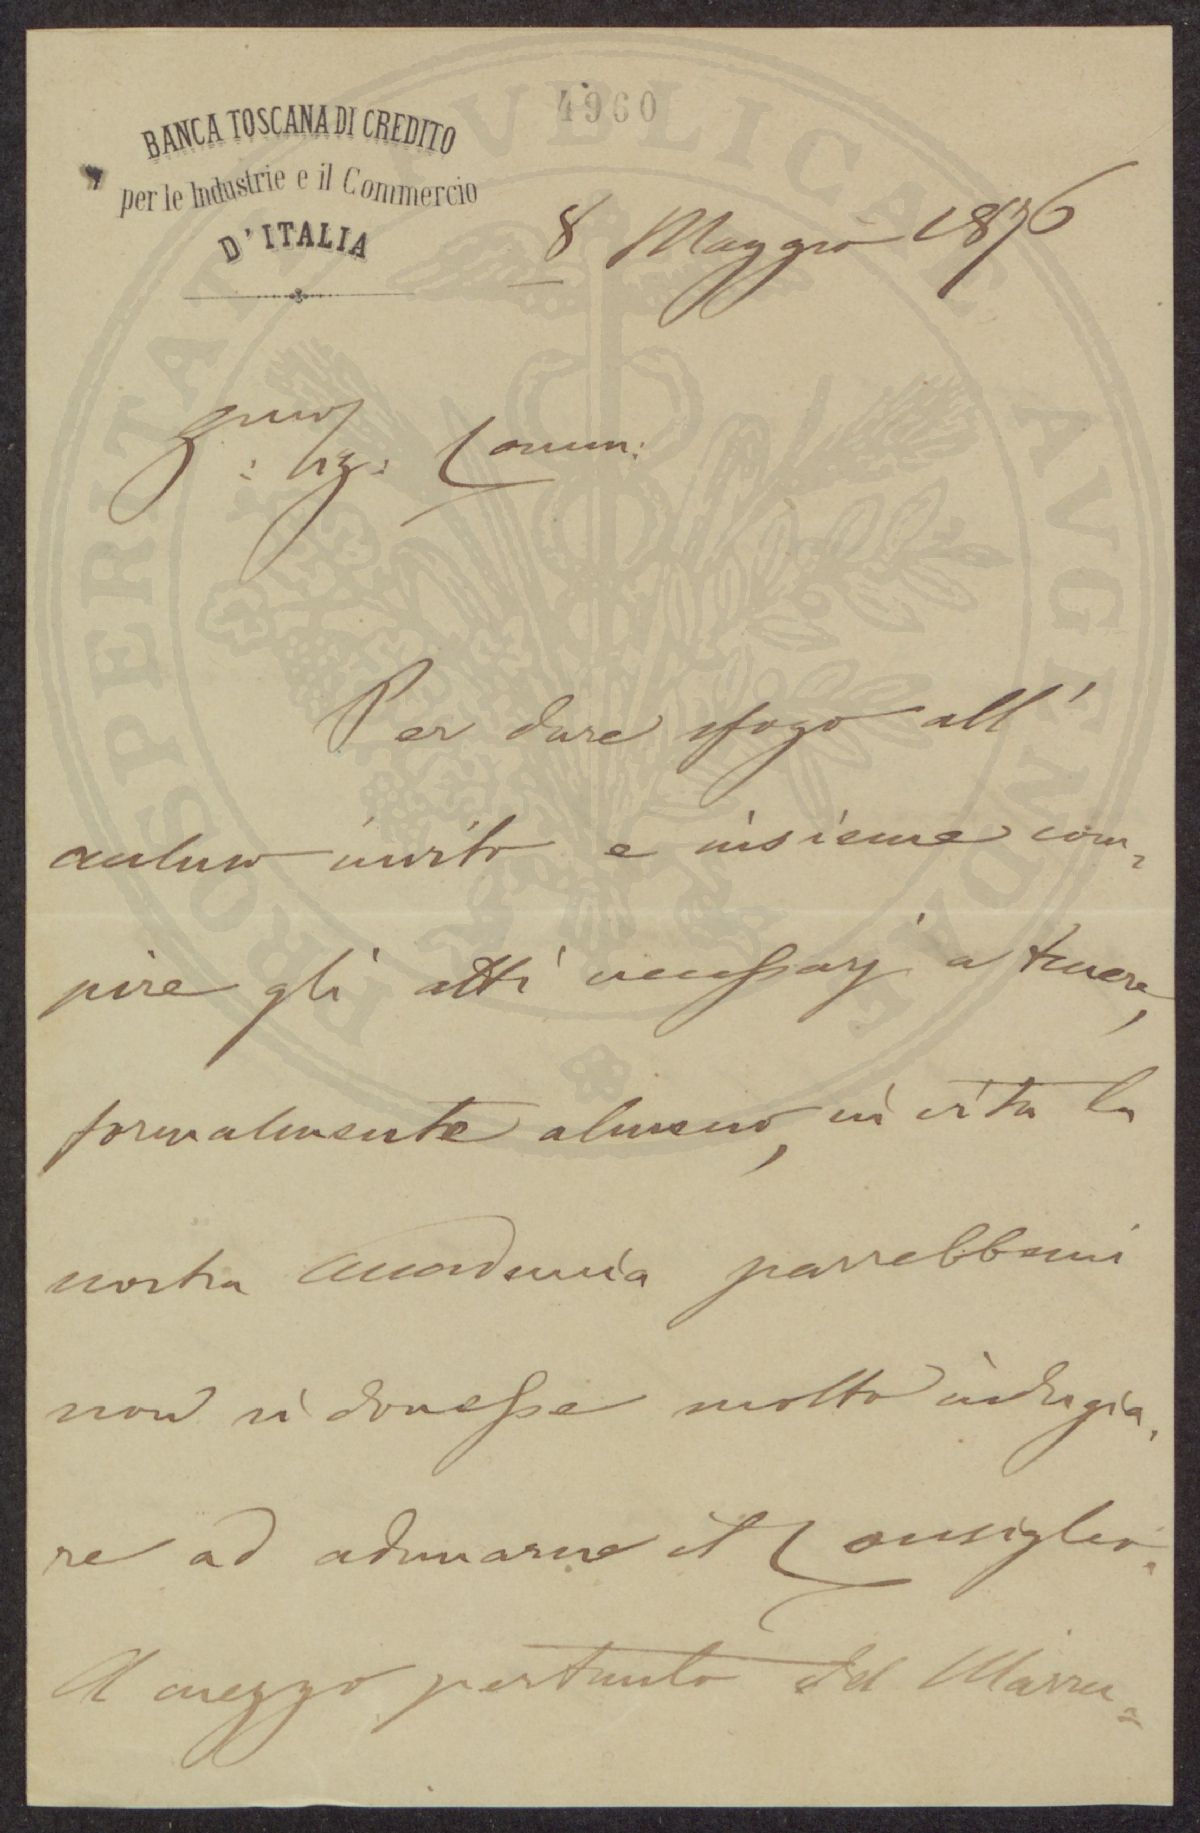 4960
BANCA TOSCANA DI CREDITO
per le Industrie e il Commercio
D'ITALIA
8 Maggio 1876
Sig: Comm:
Per dare sfogo all'
accluso invito e insieme com-
pire gli atti necessarj a tenere,
formalmente almeno, in vita la
nostra Accademia parrebbemi
non si dovesse molto indugia-
re ad adunarne il Consiglio.
A mezzo pertanto del Marru-
PROSPERITATI PVBLICAE AVGENDAE